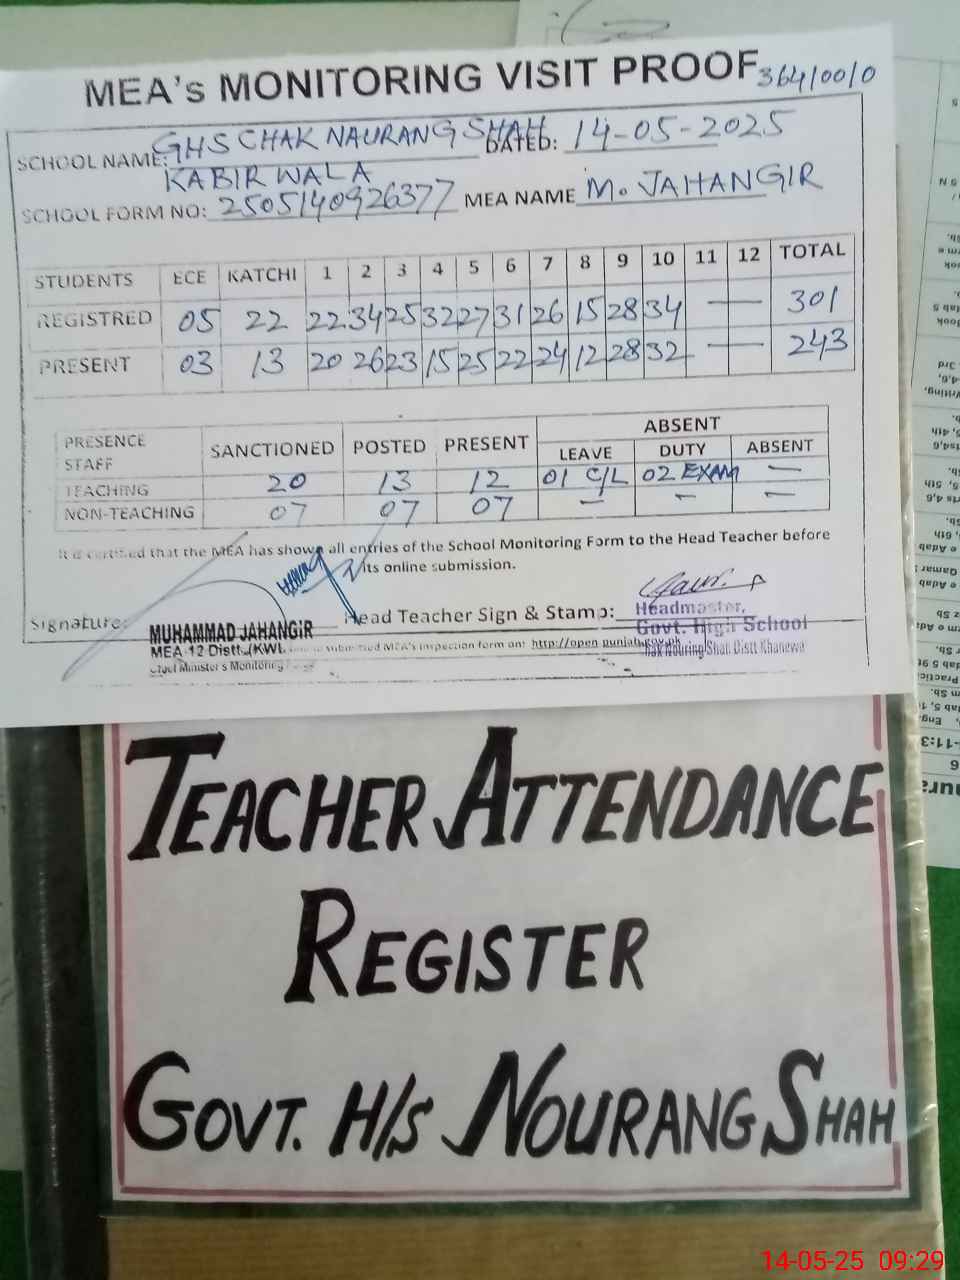 MEA's MONITORING VISIT PROOF 36410010
SCHOOL NAME: GHS CHAK NAURANG SHAH DATED: 14-05-2025
KABIRWALA
SCHOOL FORM NO: 2505140926377 MEA NAME M. JAHANGIR
STUDENTS ECE KATCHI 1 2 3 4 5 6 7 8 9 10 11 12 TOTAL
REGISTRED 05 22 22 34 25 32 27 31 26 15 28 34 — 301
PRESENT 03 13 20 26 23 15 25 22 24 12 28 32 — 243
PRESENCE STAFF SANCTIONED POSTED PRESENT ABSENT
LEAVE DUTY ABSENT
TEACHING 20 13 12 01 C/L 02 EXAM —
NON-TEACHING 07 07 07 — — —
It is certified that the MEA has shown all entries of the School Monitoring Form to the Head Teacher before
its online submission.
Signature: Head Teacher Sign & Stamp:
MUHAMMAD JAHANGIR
MEA-12 Distt. (KWL
Chief Minister's Monitoring
Headmaster,
Govt. High School
Chak Nouring Shah Distt Khanewa
submitted MEA's inspection form on: http://open.punjab.gov.pk
TEACHER ATTENDANCE
REGISTER
GOVT. H/S NOURANG SHAH
14-05-25 09:29